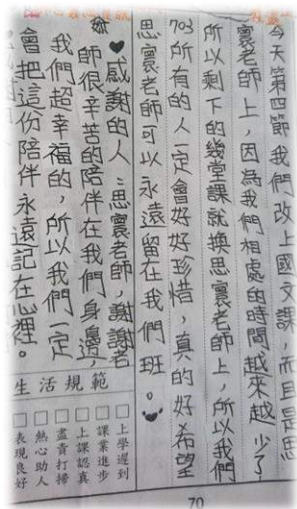 今天第四節我們改上國文課，而且是思
寰老師上，因為我們相處的時間越來越少了，
所以剩下的幾堂課就換思寰老師上，所以我們
703所有的人一定會好好珍惜，真的好希望
思寰老師可以永遠留在我們班。
感謝的人：思寰老師，謝謝老
師很辛苦的陪伴在我們身邊，
我們超幸福的，所以我們一定
會把這份陪伴永遠記在心裡。
生活規範
上學遲到
課業進步
上課認真
盡責打掃
熱心助人
表現良好
70